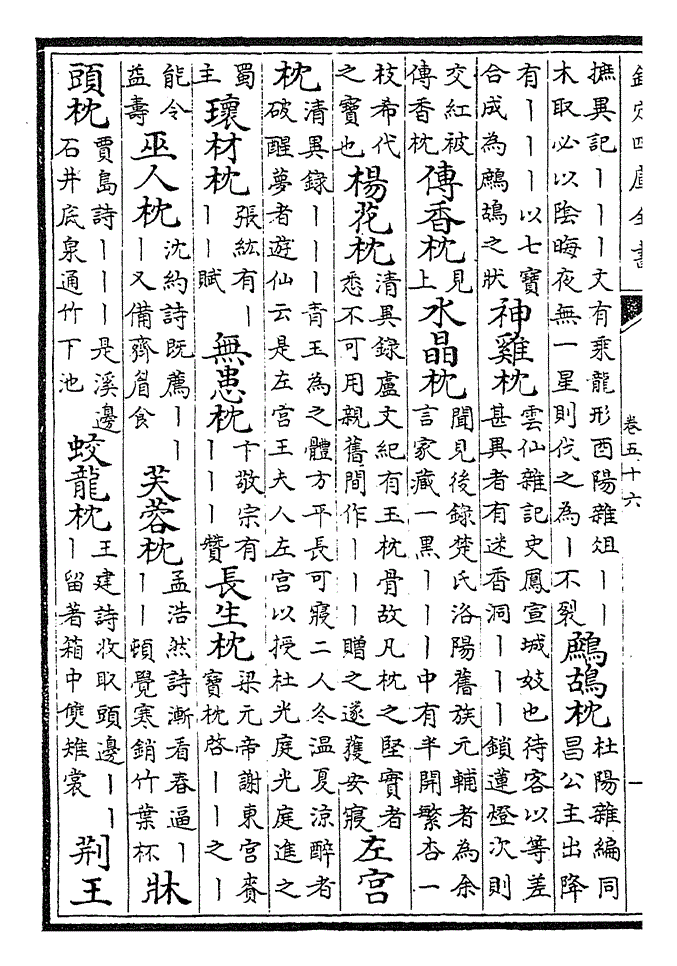 欽定四庫全書
卷五十六
一
摭異記｜｜｜文有乘龍形酉陽雜俎｜｜
木取必以陰晦夜無一星則伐之為｜不裂
鷓鴣枕
杜陽雜編同
昌公主出降
有｜｜｜以七寶
合成為鷓鴣之狀
神雞枕
雲仙雜記史鳳宣城妓也待客以等差
甚異者有迷香洞｜｜｜鎖蓮燈次則
交紅被
傳香枕
傳香枕
見
上
水晶枕
聞見後錄楚氏洛陽舊族元輔者為余
言家藏一黑｜｜｜中有半開繁杏一
枝希代
之寶也
楊花枕
清異錄盧文紀有玉枕骨故凡枕之堅實者
悉不可用親舊間作｜｜｜贈之遂獲安寢
左宫
枕
清異錄｜｜｜青玉為之體方平長可寢二人冬温夏涼醉者
破醒夢者遊仙云是左宫王夫人左宫以授杜光庭光庭進之
蜀
主
瓌材枕
張紘有｜
｜｜賦
無患枕
卞敬宗有
｜｜｜贊
長生枕
梁元帝謝東宫賚
寶枕啓｜｜之｜
能令
益壽
巫人枕
沈約詩既薦｜｜
｜又備齊眉食
芙蓉枕
孟浩然詩漸看春逼｜
｜｜頓覺寒銷竹葉杯
牀
頭枕
賈島詩｜｜｜是溪邊
石井底泉通竹下池
蛟龍枕
王建詩收取頭邊｜｜
｜留著箱中雙雉裳
荆王